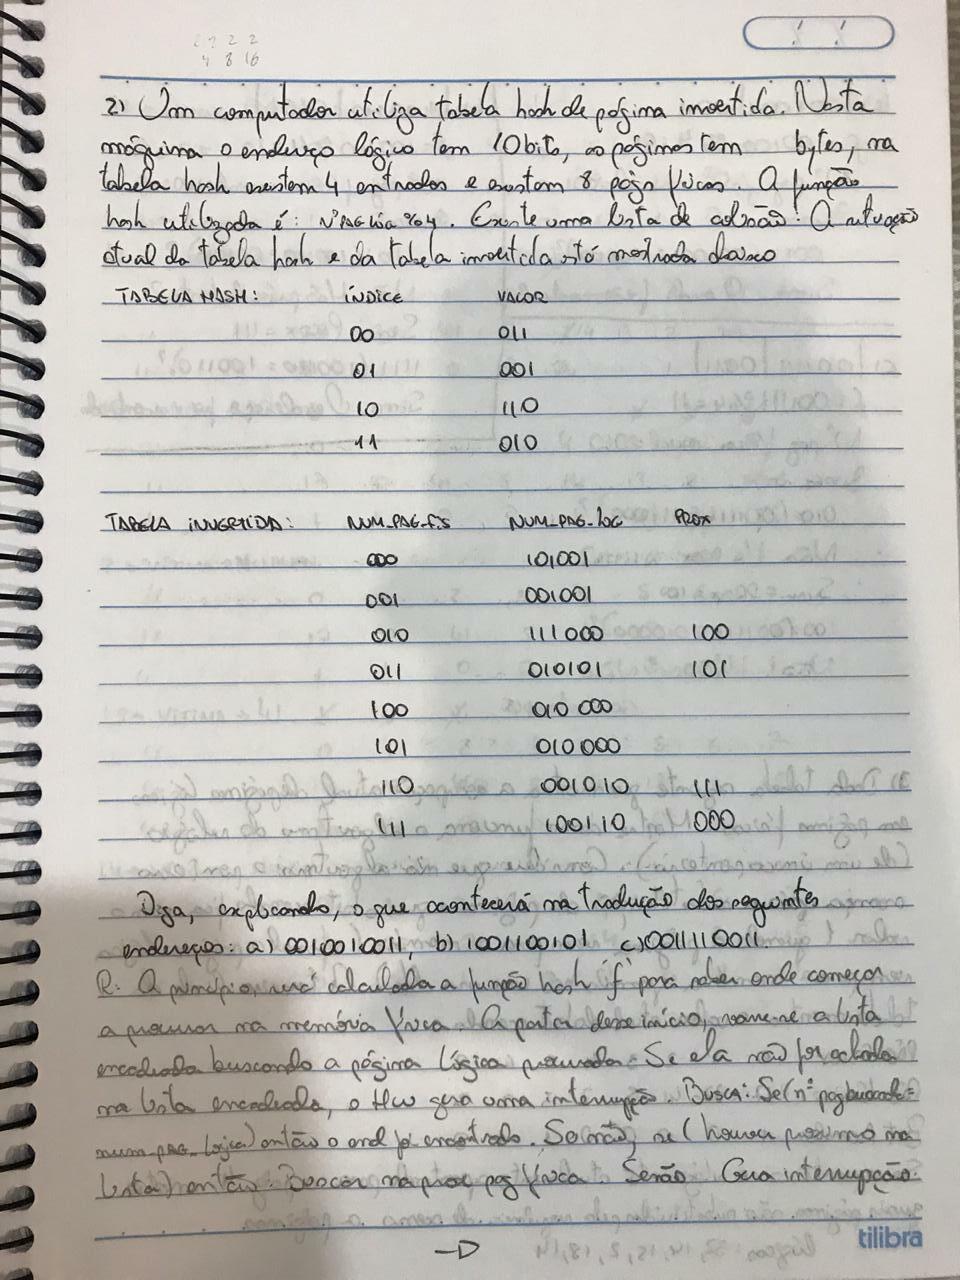 2 2 2 2
4 8 16
2) Um computador utiliza tabela hash de página invertida. Nesta
máquina o endereço lógico tem 10 bits, as páginas tem bytes, na
tabela hash existem 4 entradas e existem 8 págs físicas. A função
hash utilizada é: NºPAGLóGica % 4. Existe uma lista de colisão! A situação
atual da tabela hash e da tabela invertida está mostrada abaixo
TABELA HASH: ÍNDICE VALOR
00 011
01 001
10 110
11 010
TABELA INVERTIDA: NUM_PAG_FIS NUM_PAG_LOG PROX
000 101001
001 001001
010 111000 100
011 010101 101
100 010 000
101 010000
110 001010 111
111 100110 000
Diga, explicando, o que acontecerá na tradução dos seguintes
endereços: a) 0010010011, b) 1001100101 c) 0011110011.
R: A princípio, será calculada a função hash 'f' para saber onde começar
a procurar na memória física. A partir desse início, varre-se a lista
encadeada buscando a página lógica procurada. Se ela não for achada
na lista encadeada, o HW gera uma interrupção. Busca: Se (nº pag buscada =
num_pag_logica) então o end foi encontrado. Senão, se (houver proximo na
lista) então. Buscar na prox pag física. Senão Gera interrupção.
tilibra